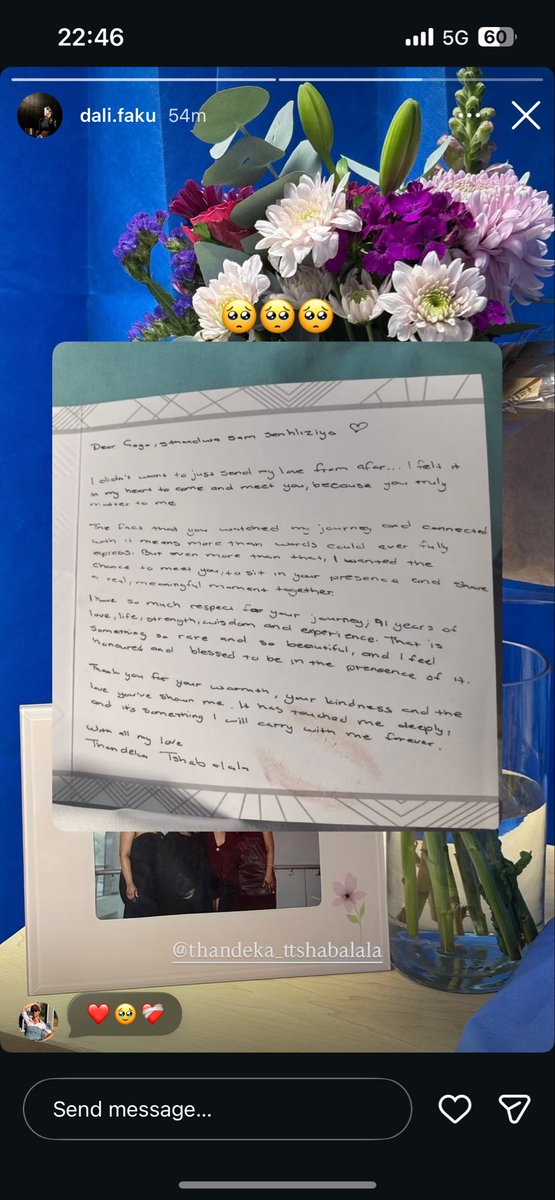 22:46
5G 60
dali.faku 54m
🥺🥺🥺
Dear Gogo, sthandwa sam senhliziyo ♡
I didn't want to just send my love from afar... I felt it
in my heart to come and meet you, because you truly
matter to me
The fact that you watched my journey and connected
with it means more than words could ever fully
express. But even more than that, I wanted the
chance to meet you, to sit in your presence and share
a real, meaningful moment together.
I have so much respect for your journey, 91 years of
love, life, strength, wisdom and experience. That is
something so rare and so beautiful, and I feel
honoured and blessed to be in the presence of it.
Thank you for your warmth, your kindness and the
love you've shown me. It has touched me deeply,
and it's something I will carry with me forever.
With all my love
Thandeka Tshabalala
@thandeka_ttshabalala
❤️🥹❤️‍🩹
Send message...